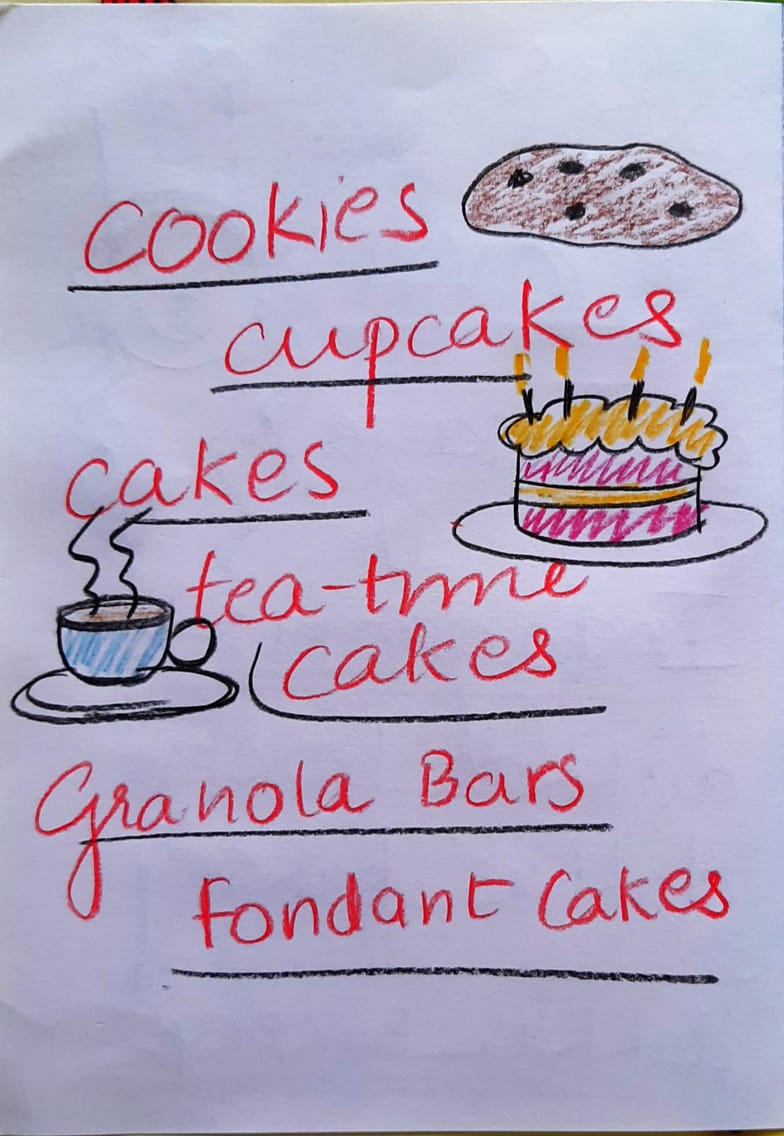 cookies
cupcakes
cakes
tea-time
cakes
Granola Bars
fondant Cakes